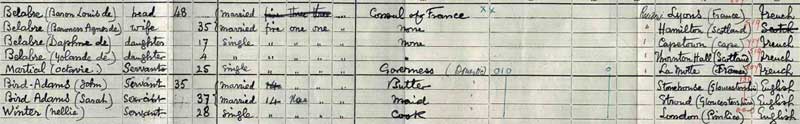 Belabre (Baron Louis de) head 48 married five three three " Consul of France xx Lyons (France) French
Belabre (Baroness Agnes de) wife 35 married five one one " None Hamilton (Scotland) Scotch French
Belabre (Daphne de) daughter 17 Single " " " " None Capetown Cape French
Belabre (Yolande de) daughter 4 " " " " " Thornton Hall (Scotland) French
Martial (octavie.) Servants 25 Single " " " " Governess (Domestic) 010 La Motte (France) French
Bird-Adams (John) Servant 35 married 14 " " " Butler Stonehouse (Gloucestershire) English
Bird Adams (Sarah) Servant 37 married 14 None " " maid Stroud (Gloucestershire) English
Winter (nellie) Servant 28 Single " " " " Cook London English